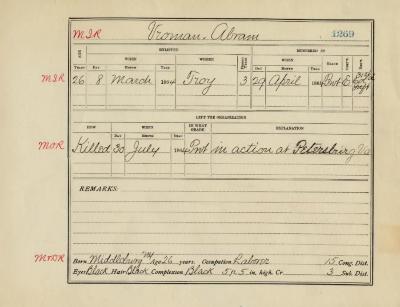 M.I.R Vroman, Abram 1269
AGE ENLISTED MUSTERED IN
WHEN WHERE PERIOD YEARS WHEN GRADE COM'Y. REG'T.
YEARS DAY MONTH YEAR DAY MONTH YEAR
M.I.R 26 8 March 1864 Troy 3 29 April 1864 Pvt E
LEFT THE ORGANIZATION
HOW WHEN IN WHAT GRADE EXPLANATION
DAY MONTH YEAR
M.O.R Killed 30 July 1864 Pvt in action at Petersburg Va
REMARKS:
M.O.R Born Middleburg NY Age 26 years. Occupation Laborer 15 Cong. Dist.
Eyes Black Hair Black Complexion Black 5 ft. 5 in. high. Cr. 3 Sub. Dist.